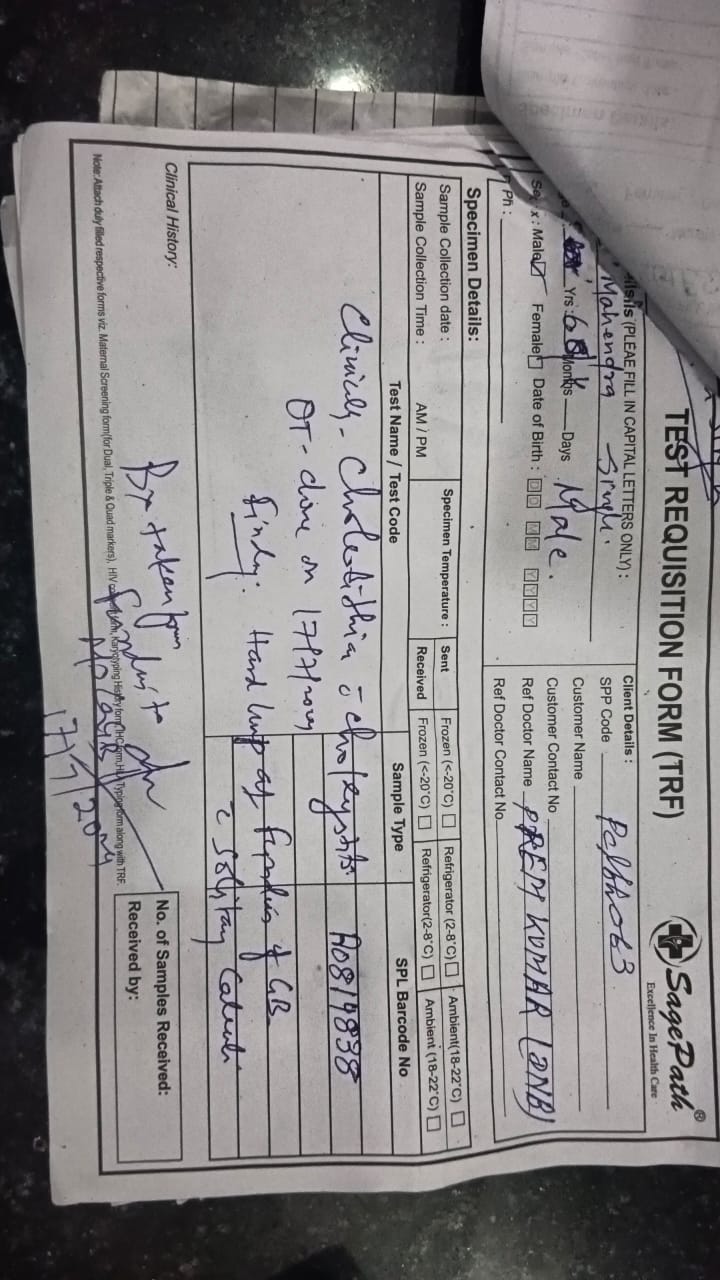 TEST REQUISITION FORM (TRF)
SagePath®
Excellence In Health Care
(PLEAE FILL IN CAPITAL LETTERS ONLY) :
Mahendra Singh.
Yrs : 68 Y Months Days Male.
Sex : Male Female Date of Birth : DD MM YYYY
Ph :
Client Details :
SPP Code
Customer Name
Customer Contact No
Ref Doctor Name PREM KUMAR (DNB)
Ref Doctor Contact No
Specimen Details:
Sample Collection date : Specimen Temperature : Sent Frozen (<-20°C) Refrigerator (2-8°C) Ambient(18-22°C)
Sample Collection Time : AM / PM Received Frozen (<-20°C) Refrigerator(2-8°C) Ambient (18-22°C)
Test Name / Test Code Sample Type SPL Barcode No
A0819838
OT - done on 17/7/2024
Finding: Hard lump at Fundus of GB
c Solitary
Bx taken from
Fundus
17/7/2024
Clinical History:
No. of Samples Received:
Received by:
Note: Attach duly filled respective forms viz. Maternal Screening form(for Dual, Triple & Quad markers), HIV Karyotyping History form, IHC form, HLA Typing form along with TRF.